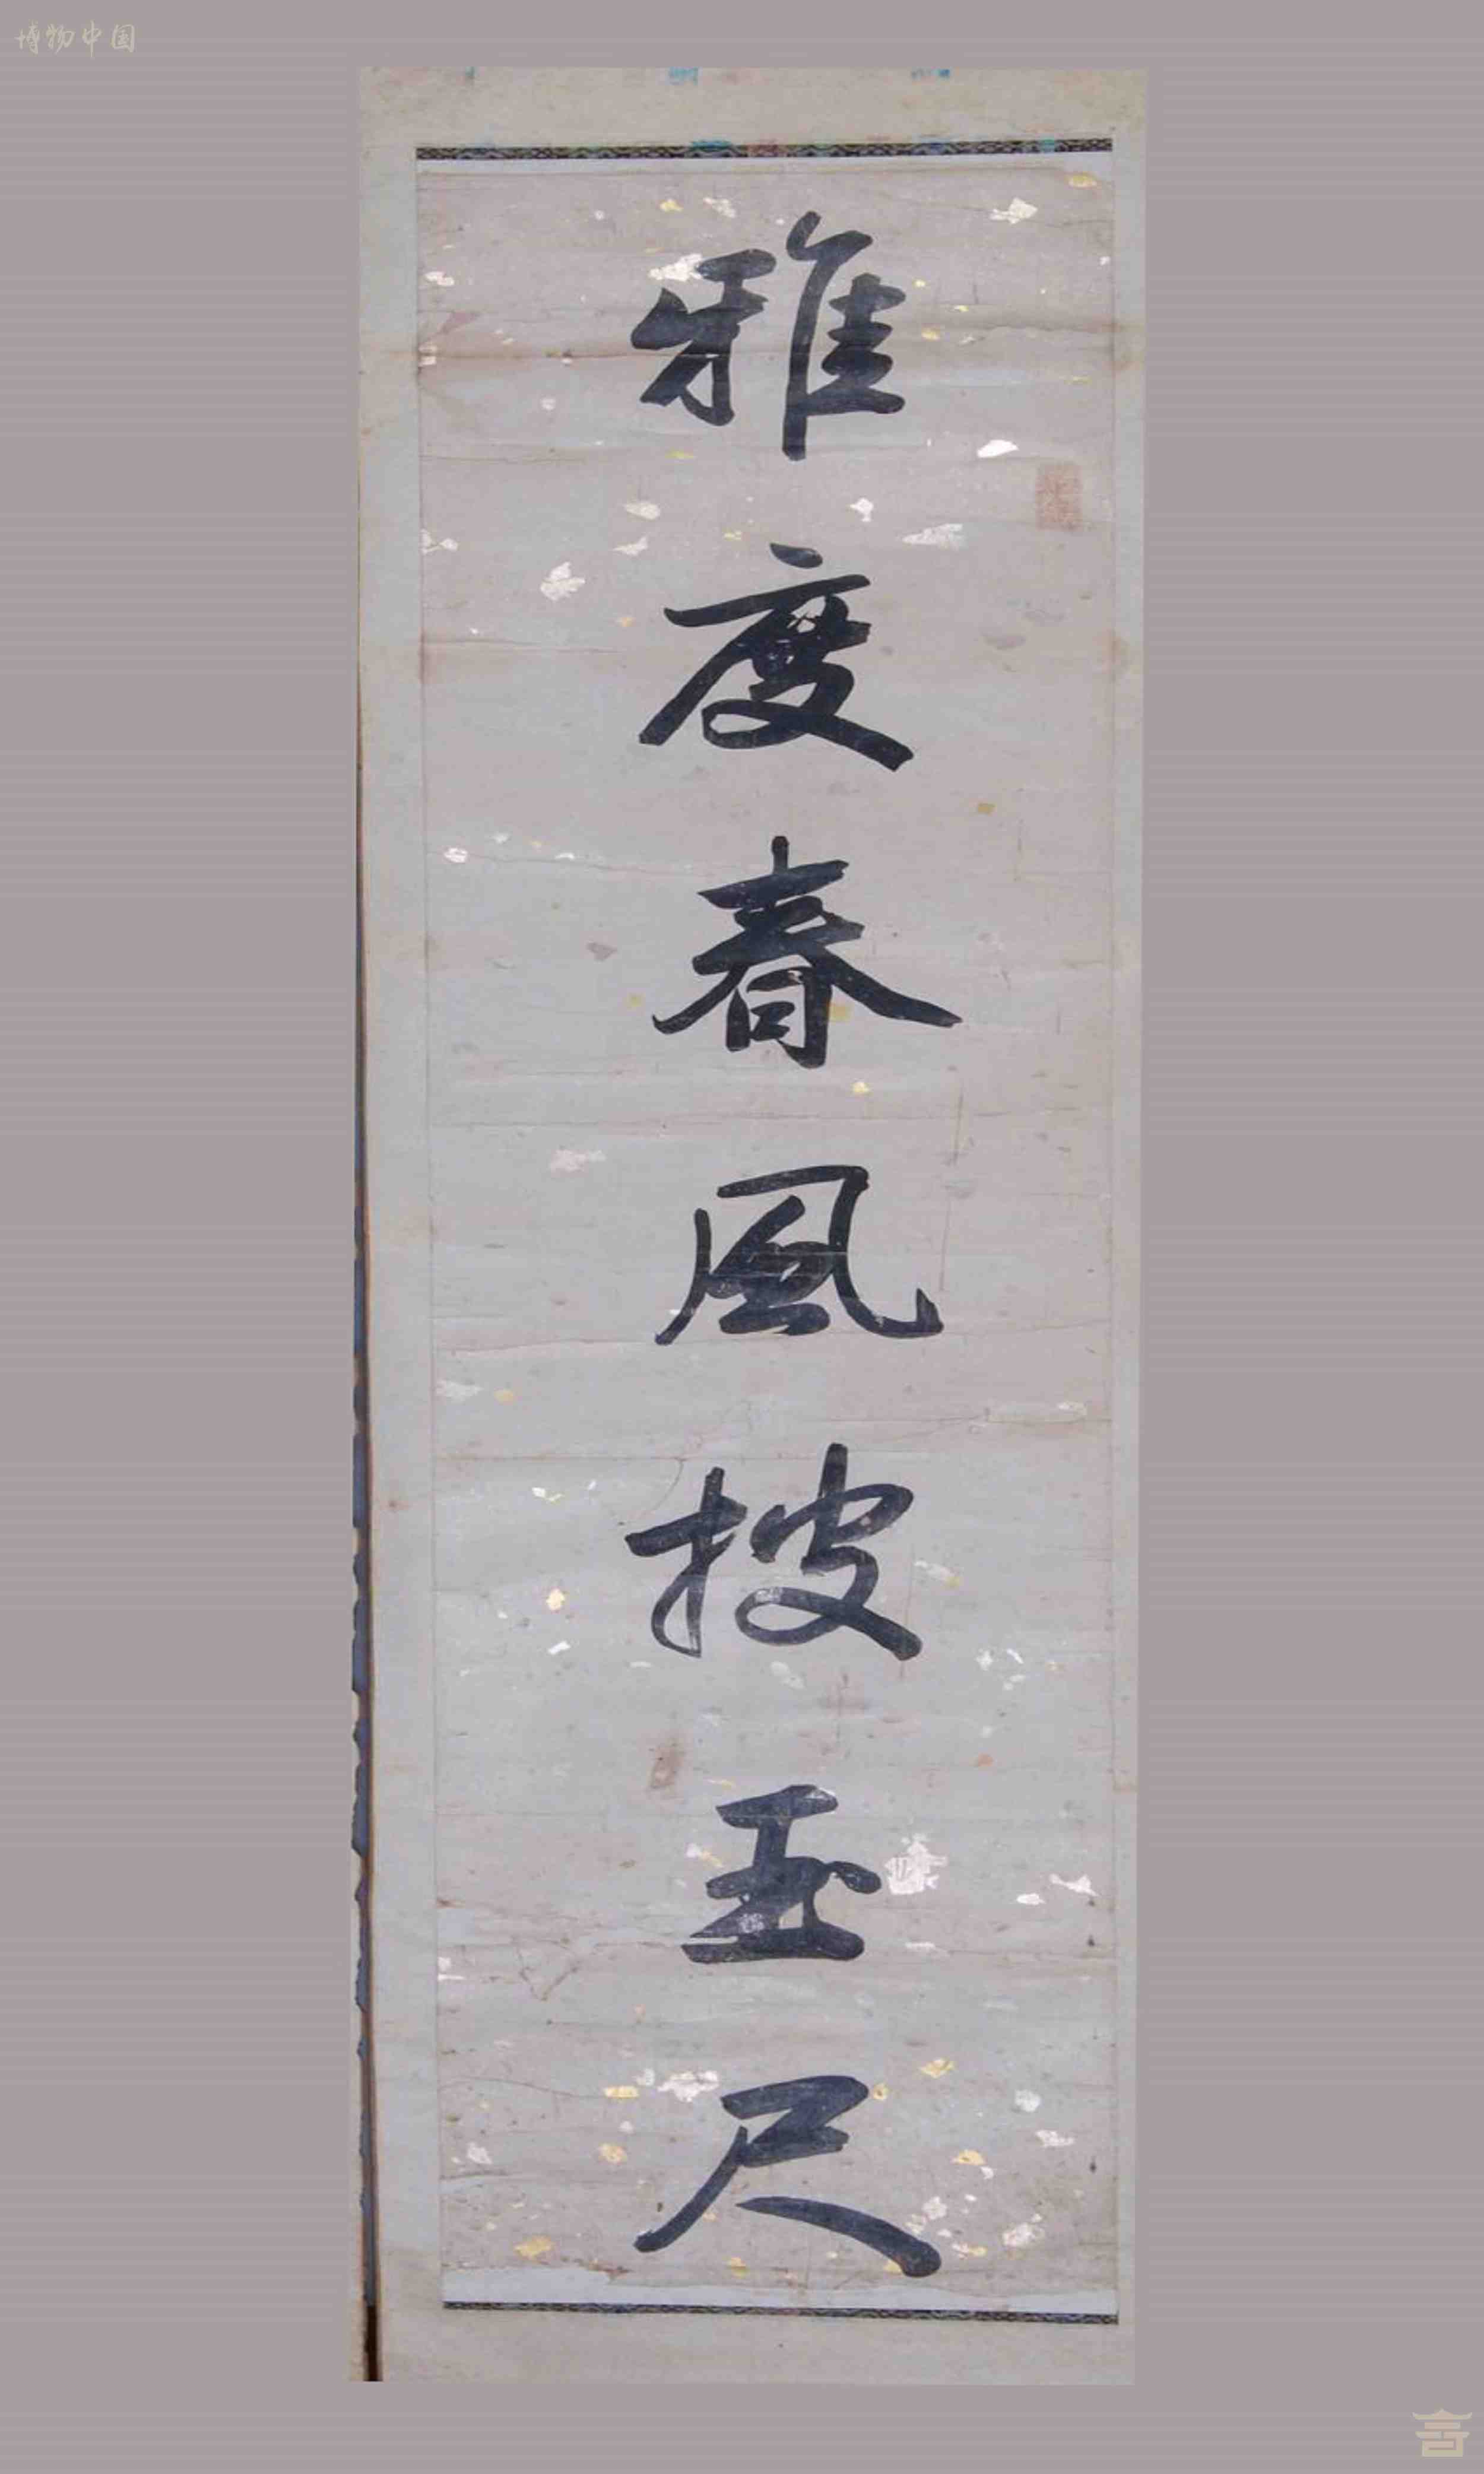 博物中国
雅度春風披玉尺